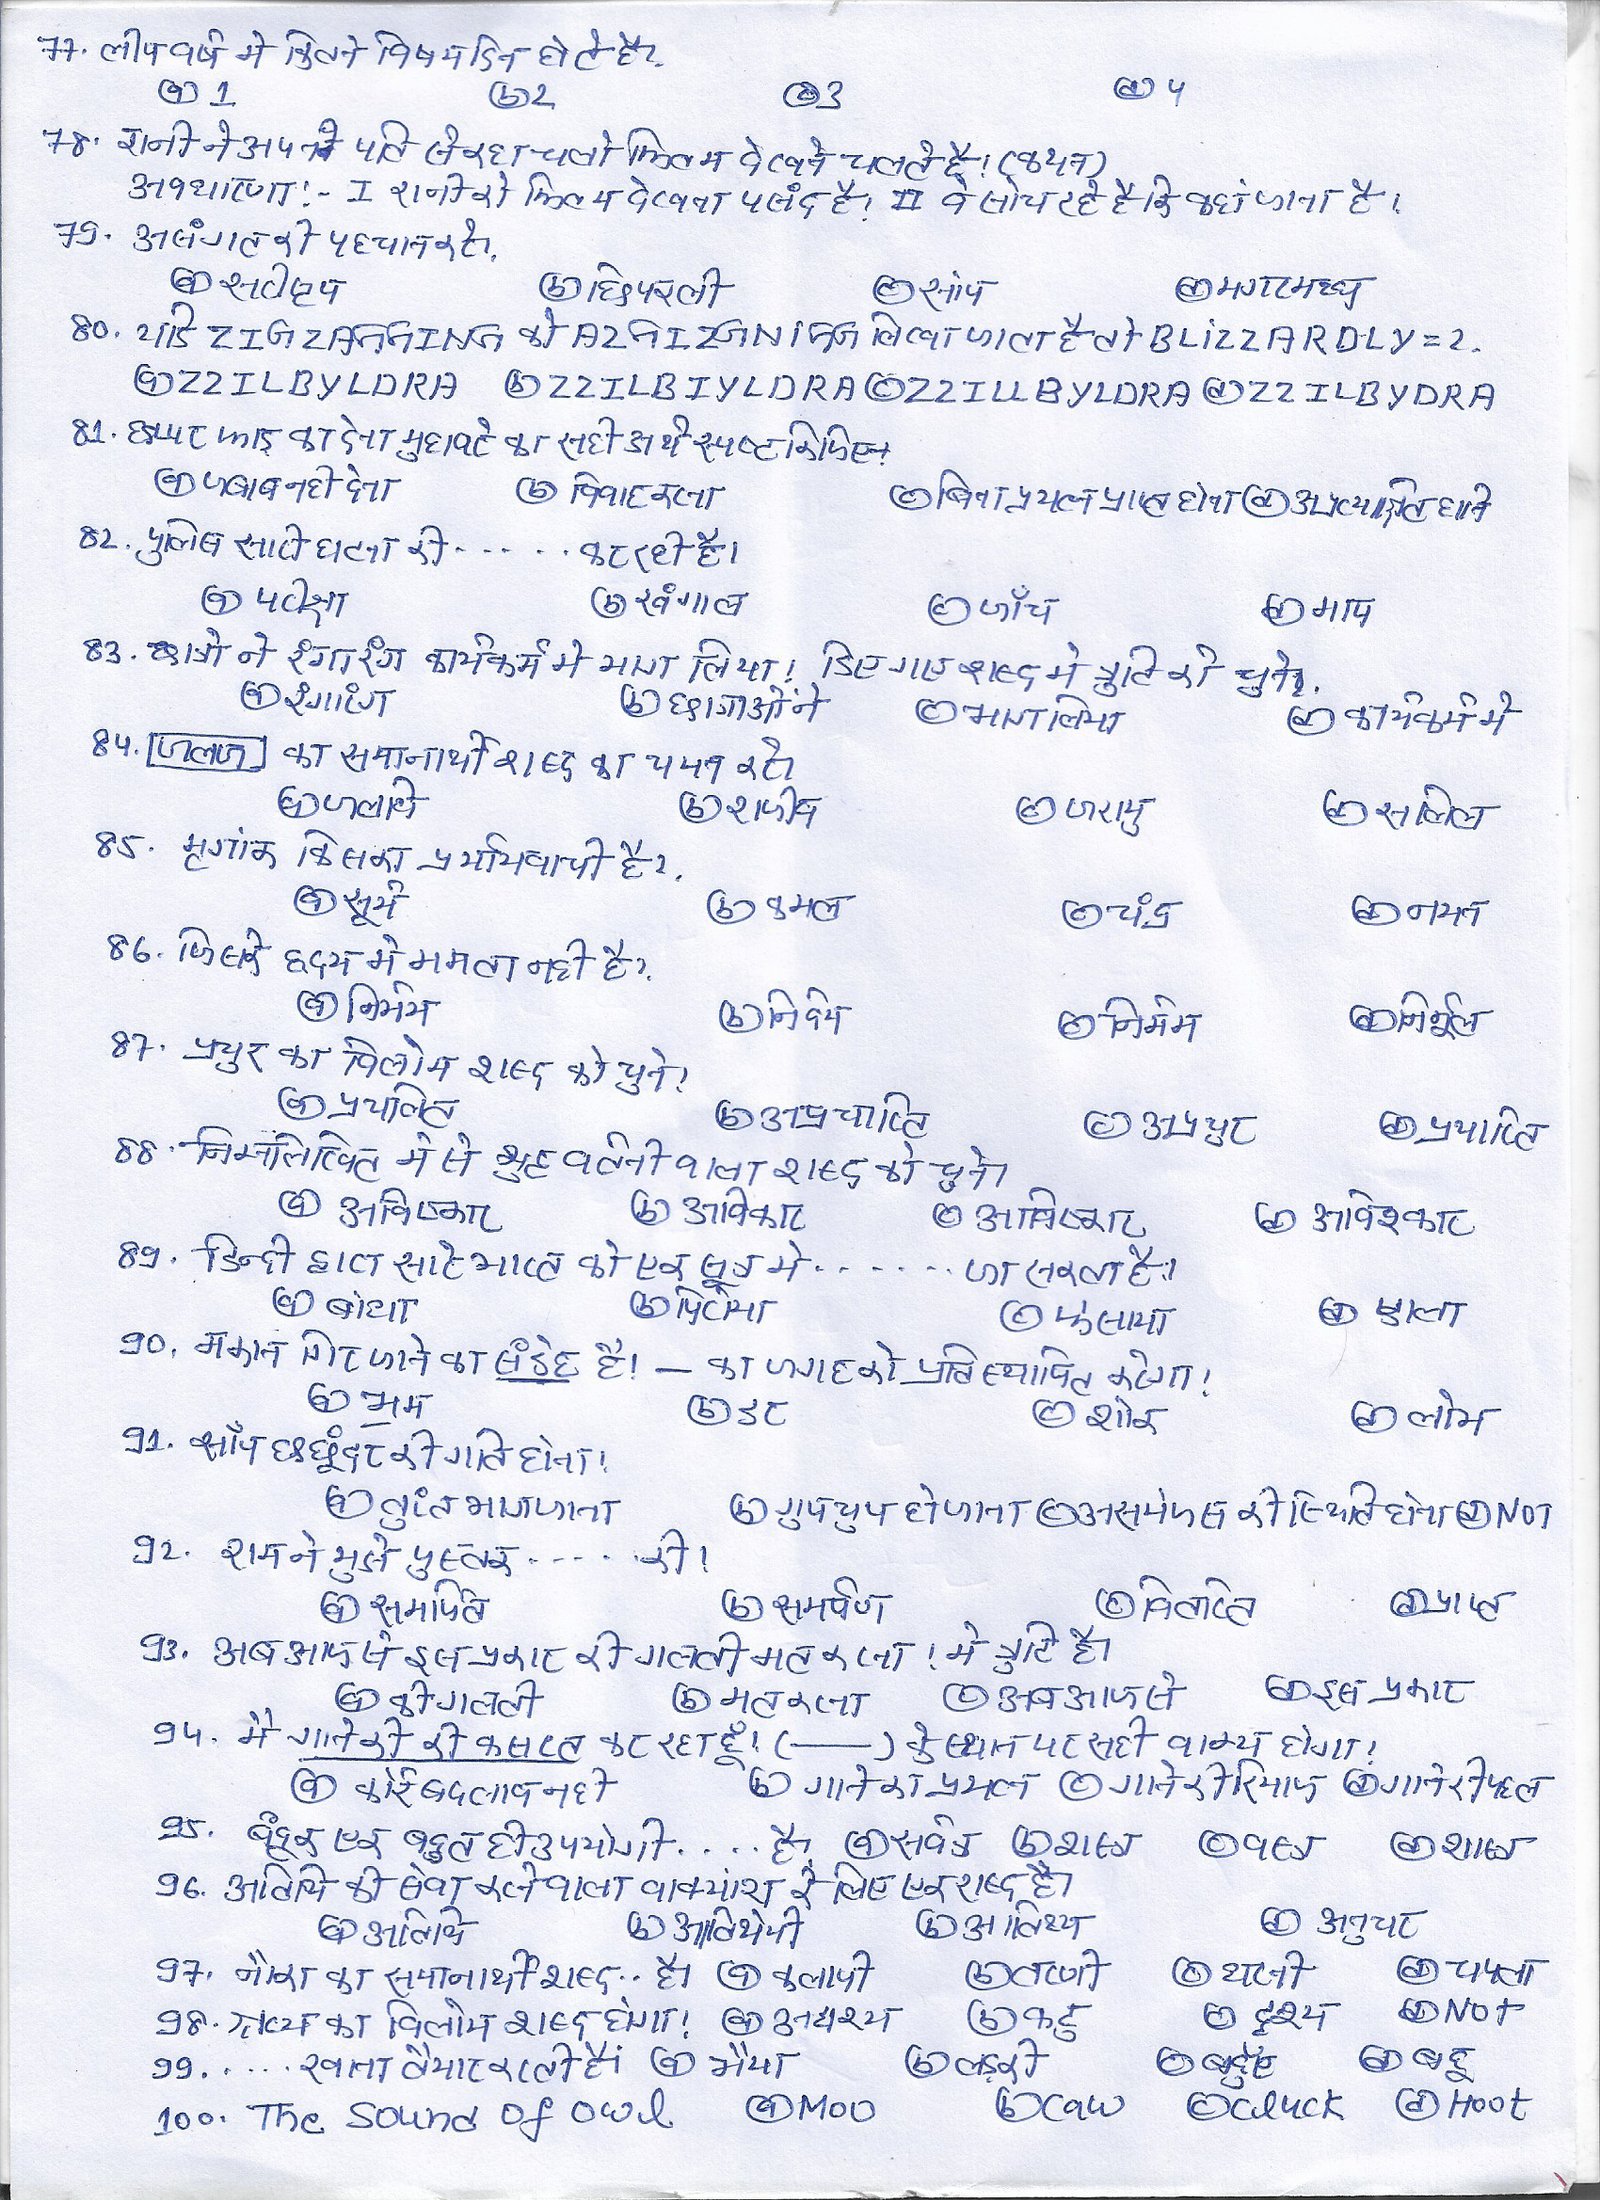 77. लीप वर्ष में कितने विषम दिन होते है?
ⓐ 1 ⓑ 2 ⓒ 3 ⓓ 4
78. रानी ने अपने पति से कहा चलो फिल्म देखने चलते है। (कथन)
अवधारणा:- I रानी को फिल्म देखना पसंद है। II वे सोच रहे है कि कहां जाना है।
79. असंगत की पहचान करे।
ⓐ सरीसृप ⓑ छिपकली ⓒ सांप ⓓ मगरमच्छ
80. यदि ZIGZAGGING को AZGIZGNIGG लिखा जाता है तो BLIZZARDLY = ?.
ⓐ ZZILBYLDRA ⓑ ZZILBIYLDRA ⓒ ZZILLBYLDRA ⓓ ZZILBYDRA
81. छप्पर फाड़ कर देना मुहावरे का सही अर्थ स्पष्ट किजिए।
ⓐ जवाब नही देना ⓑ विवाद करना ⓒ बिना प्रयत्न प्राप्त होना ⓓ अप्रत्याशित हानि
82. पुलिस सारी घटना की ...... कर रही है।
ⓐ परीक्षा ⓑ खंगाल ⓒ जाँच ⓓ माप
83. छात्रो ने रंगारंग कार्यकर्म मे भाग लिया। दिए गए शब्द मे त्रुटि को चुने।
ⓐ रंगारंग ⓑ छात्राओं ने ⓒ भाग लिया ⓓ कार्यकर्म मे
84. जलज का समानार्थी शब्द का चयन करे।
ⓐ जलधि ⓑ राजीव ⓒ जरायु ⓓ सलिल
85. मृगांक किसका प्रर्यायवाची है?.
ⓐ सूर्य ⓑ कमल ⓒ चंद्र ⓓ नयन
86. जिसके ह्रदय मे ममता नही है?.
ⓐ निर्भय ⓑ निर्दय ⓒ निर्मम ⓓ निर्मूल
87. प्रचुर का विलोम शब्द को चुने।
ⓐ प्रचलित ⓑ अप्रचारित ⓒ अप्रचुर ⓓ प्रचारित
88. निम्नलिखित मे से शुद्ध वर्तनी वाला शब्द को चुने।
ⓐ अविष्कार ⓑ आविकार ⓒ आविष्कार ⓓ आविश्कार
89. हिन्दी द्वारा सारे भारत को एक सूत्र मे ....... जा सकता है।
ⓐ बांधा ⓑ पिरोया ⓒ फैलाया ⓓ डाला
90. मकान गिर जाने का संदेह है। — का जगह को प्रतिस्थापित करेगा।
ⓐ भ्रम ⓑ डर ⓒ शोक ⓓ लोभ
91. साँप छछूंदर की गति होना।
ⓐ तुरंत भाग जाना ⓑ गुपचुप हो जाना ⓒ असमंजस की स्थिति होना ⓓ NOT
92. राम ने मुझे पुस्तक ...... की।
ⓐ समर्पित ⓑ समर्पण ⓒ वितरित ⓓ प्राप्त
93. अब आज से इस प्रकार की गलती मत करना। मे त्रुटि है।
ⓐ की गलती ⓑ मत करना ⓒ अब आज से ⓓ इस प्रकार
94. मै गाने की की कसरत कर रहा हूँ। (——) के स्थान पर सही वाक्य होगा।
ⓐ कोई बदलाव नही ⓑ गाने का प्रयत्न ⓒ गाने की रियाज ⓓ गाने की पहल
95. बंदूक एक बहुत ही उपयोगी ..... है। ⓐ सर्वत्र ⓑ शस्त्र ⓒ वस्त्र ⓓ शास्त्र
96. अतिथि की सेवा करने वाला वाक्यांश के लिए एक शब्द है।
ⓐ अतिथि ⓑ आतिथेयी ⓑ आतिथ्य ⓓ अनुचर
97. नौका का समानार्थी शब्द .. है। ⓐ कलापी ⓑ तरणी ⓒ धरनी ⓓ चपला
98. श्रव्य का विलोम शब्द होगा। ⓐ अदृश्य ⓑ कटु ⓒ दृश्य ⓓ NOT
99. ..... खाना तैयार करती है। ⓐ मैया ⓑ लड़की ⓒ बहुएँ ⓓ बहू
100. The Sound of Owl ⓐ Moo ⓑ Caw ⓒ Cluck ⓓ Hoot